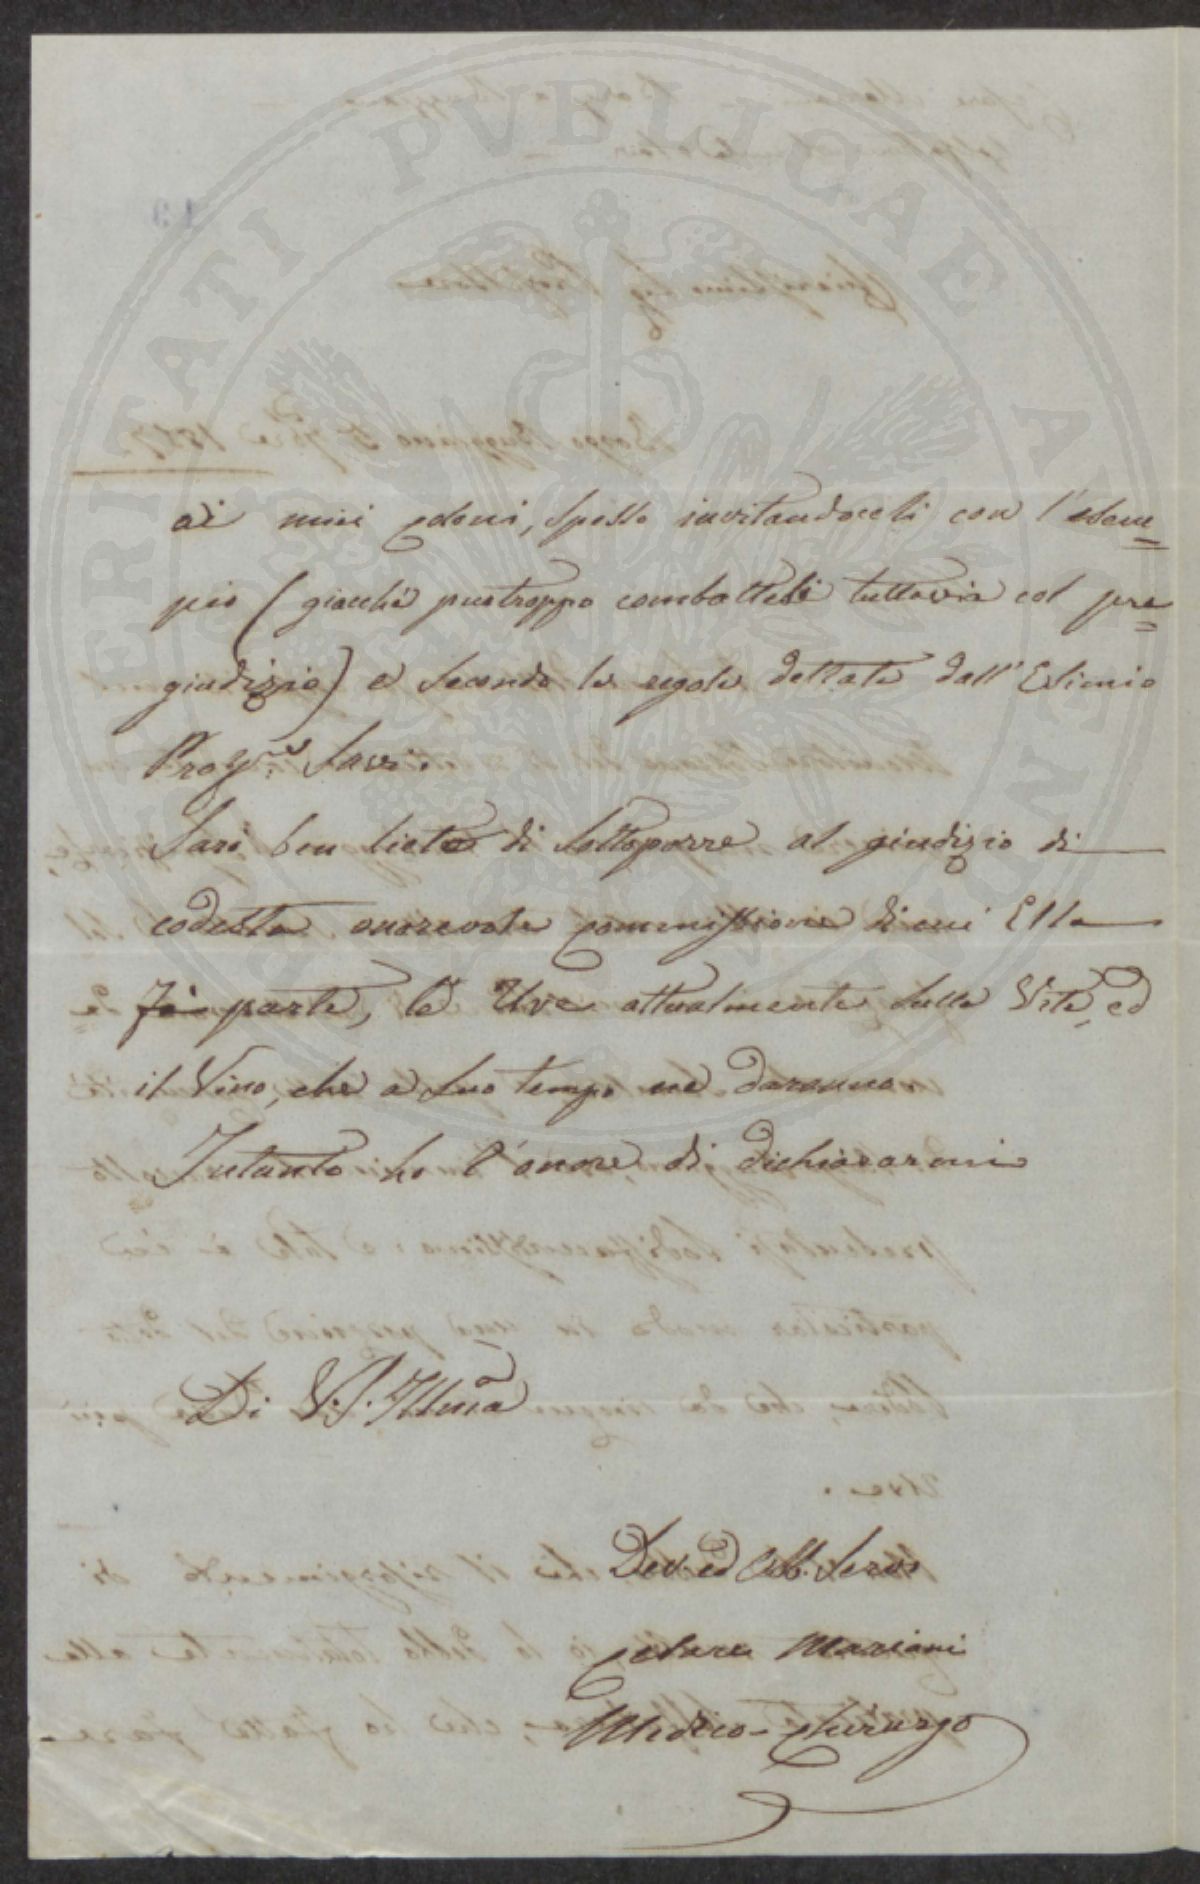 PROSPERITATI PVBLICAE AVGENDAE
ai miei coloni, spesso invitandoceli con l'esem=
pio (giacchè purtroppo combattesi tuttavia col pre=
giudizio) e secondo le regole dettate dall'Esimio
Prof.re Savi.
Sarò ben lieto di sottoporre al giudizio di
codesta onorevole commissione di cui Ella
fà parte, le Uve attualmente sulla Vite, ed
il Vino, che a suo tempo ne daranno
Intanto ho l'onore di dichiararmi
Di V.S. Illma
Dev. ed Obb. Servo
Cesare Mariani
Medico-Chirurgo